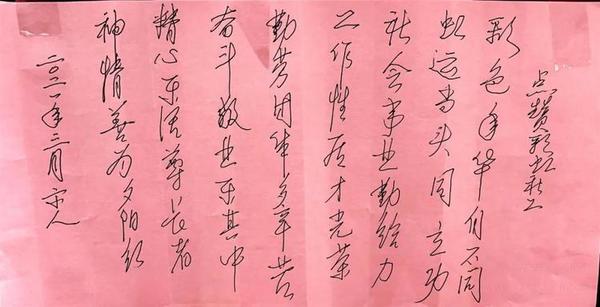 点赞彩虹社工
彩色年华自不同
虹运当头同立功
社会事业勤给力
工作性质才光荣
勤劳团体多辛苦
奋斗敬业乐其中
精心乐活尊长者
神情善为夕阳红
二〇二一年三月